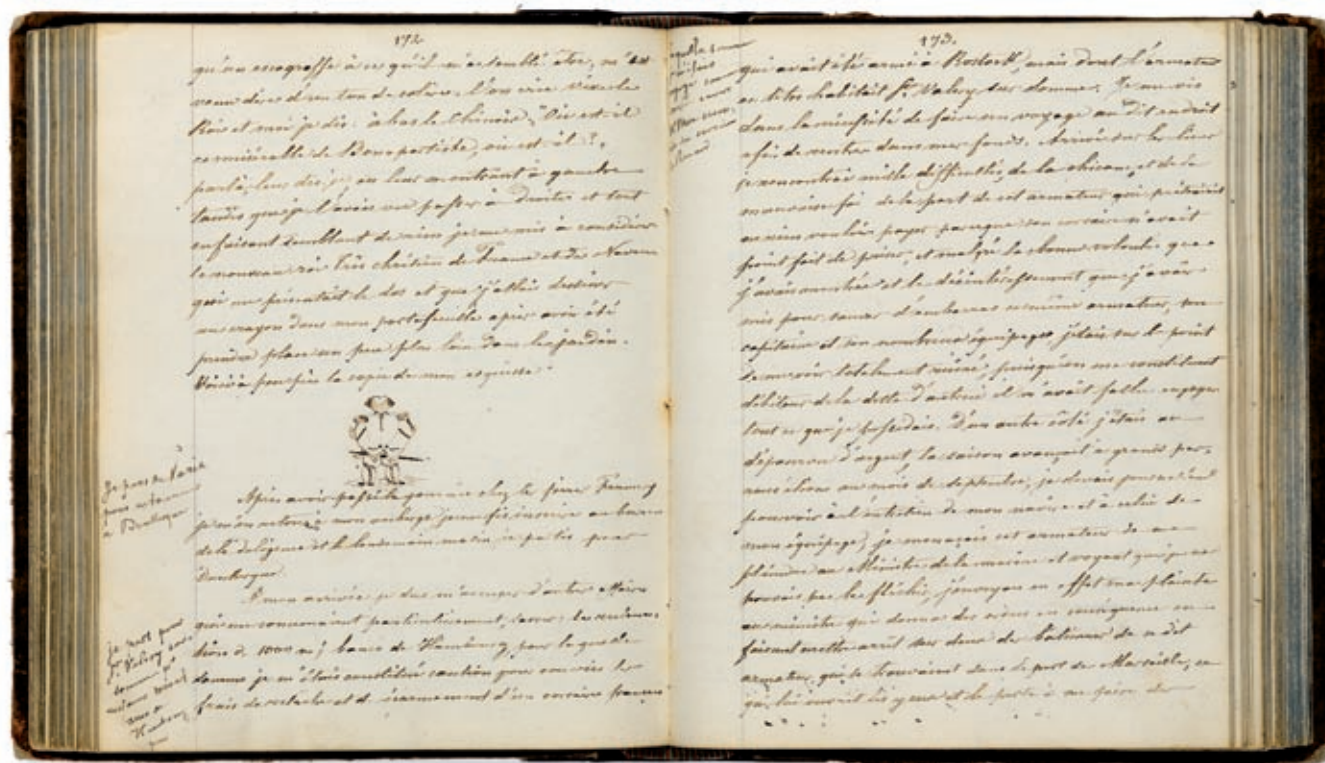 172
qu'un escogriffe à ce qu'il m'a semblé être, m'est
venu dire d'un ton de colère, l'on crie vive le
Roi et moi je dis: à bas le Chinois, "Où est-il
ce misérable de Bonapartiste, où est-il?,
par là, leur dis-je, en leur montrant à gauche
tandis que je l'avais vu passer à droite, et tout
en faisant semblant de rien je me mis à considérer
le nouveau roi très chrétien de France et de Navarre
qui me présentait le dos et que j'allais dessiner
au crayon dans mon portefeuille après avoir été
prendre place un peu plus loin dans le jardin.
Voici à peu près la copie de mon esquisse:
Je pars de Paris
pour
à Dunkerque
Après avoir passé la journée chez le sieur
je m'en retournai à mon auberge je me fis inscrire au bureau
de la diligence et le lendemain matin je partis pour
Dunkerque.
Je pars pour
St Valery sur
Somme
A mon arrivée je dus m'occuper d'autres affaires
qui me concernaient particulièrement, savoir: les
de 1000 banco de Hambourg, pour laquelle
somme je m'étais constitué caution pour couvrir les
frais de relache et de désarmement d'un corsaire français
173.
qui avait été armé à Rostock, mais dont l'armateur
en titre habitait St Valery sur Somme. Je me vis
dans la nécessité de faire un voyage au dit endroit
afin de rentrer dans mes fonds. Arrivé sur les lieux
je rencontrai mille difficultés, de la chicane, et de la
mauvaise foi de la part de cet armateur qui prétendait
ne rien vouloir payer parceque son corsaire n'avait
point fait de prises, et malgré la bonne volonté que
j'avais montrée et le désintéressement que j'avais
mis pour sauver d'embarras ce même armateur, son
capitaine et son nombreux équipage, j'étais sur le point
de me voir totalement ruiné, puisqu'en me constituant
débiteur de la dette d'autrui il m'avait fallu engager
tout ce que je possédais. D'un autre côté j'étais au
dépourvu d'argent, la saison avançait à grands pas,
nous étions au mois de septembre, je devais penser à
pourvoir à l'entretien de mon navire et à celui de
mon équipage, je menaçais cet armateur de me
plaindre au Ministre de la marine et voyant que je ne
pouvais pas le fléchir, j'envoyai en effet ma plainte
au ministre qui donna des ordres en conséquence en
faisant mettre arrêt sur deux des bâtimens de ce dit
armateur, qui se trouvaient dans le port de Marseille, ce
qui lui ouvrit les yeux et le porta à me faire des